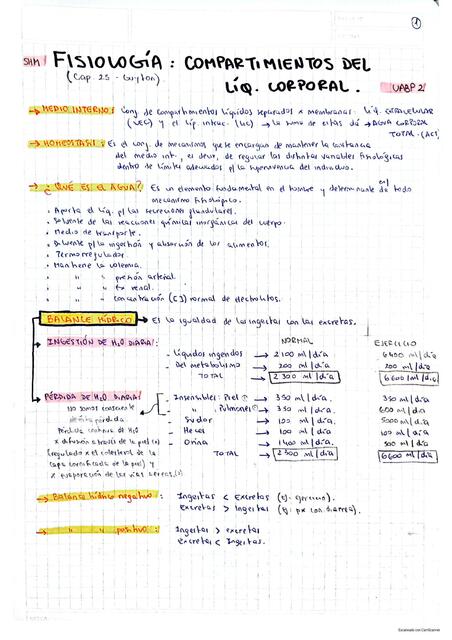 1
SHM FISIOLOGÍA: COMPARTIMIENTOS DEL
(Cap. 25 - Guyton). LÍQ. CORPORAL. UABP 2
→ MEDIO INTERNO: Conj. de compartimientos líquidos separados x membranas: LÍQ. EXTRACELULAR
(LEC) y el líq. intrac. (LIC) → la suma de estas dá → AGUA CORPORAL
TOTAL. (ACT)
→ HOMEOSTASIS: Es el conj. de mecanismos que se encargan de mantener la constancia
del medio int., es decir, de regular las distintas variables fisiológicas
dentro de límites adecuados p/ la supervivencia del individuo.
→ ¿QUÉ ES EL AGUA? Es un elemento fundamental en el hombre y determinante en todo
mecanismo fisiológico.
• Aporta el líq. p/ las secreciones glandulares.
• Solvente de las reacciones químicas inorgánicas del cuerpo.
• Medio de transporte.
• Solvente p/ la ingestión y absorción de los alimentos.
• Termorregulador
• Mantiene la volemia.
• " " presión arterial.
• " " fx renal.
• " " concentración ([ ]) normal de electrolitos.
BALANCE HÍDRICO → Es la igualdad de las ingestas con las excretas.
→ INGESTIÓN DE H2O DIARIA: NORMAL EJERCICIO
- Líquidos ingeridos → 2100 ml/día 6400 ml/día
- Del metabolismo → 200 ml/día 200 ml/día
TOTAL → 2300 ml/día 6600 ml/día
PÉRDIDA DE H2O DIARIA: - Insensibles: Piel ① → 350 ml/día. 350 ml/día.
No somos conscientes - " Pulmones ② → 350 ml/día. 600 ml/día
de esta pérdida - Sudor → 100 ml/día 5000 ml/día
Pérdida continua de H2O - Heces → 100 ml/día 100 ml/día
x difusión a través de la piel (1) - Orina → 1400 ml/día. 500 ml/día
(regulado x el colesterol de la TOTAL → 2300 ml/día 6600 ml/día
capa cornificada de la piel) y
x evaporación de las vías aéreas. (2)
→ Balance hídrico negativo: Ingestas < excretas (Ej. ejercicio).
Excretas > Ingestas (Ej: px con diarrea).
→ " " positivo: Ingestas > excretas
Excretas < Ingestas.
Escaneado con CamScanner